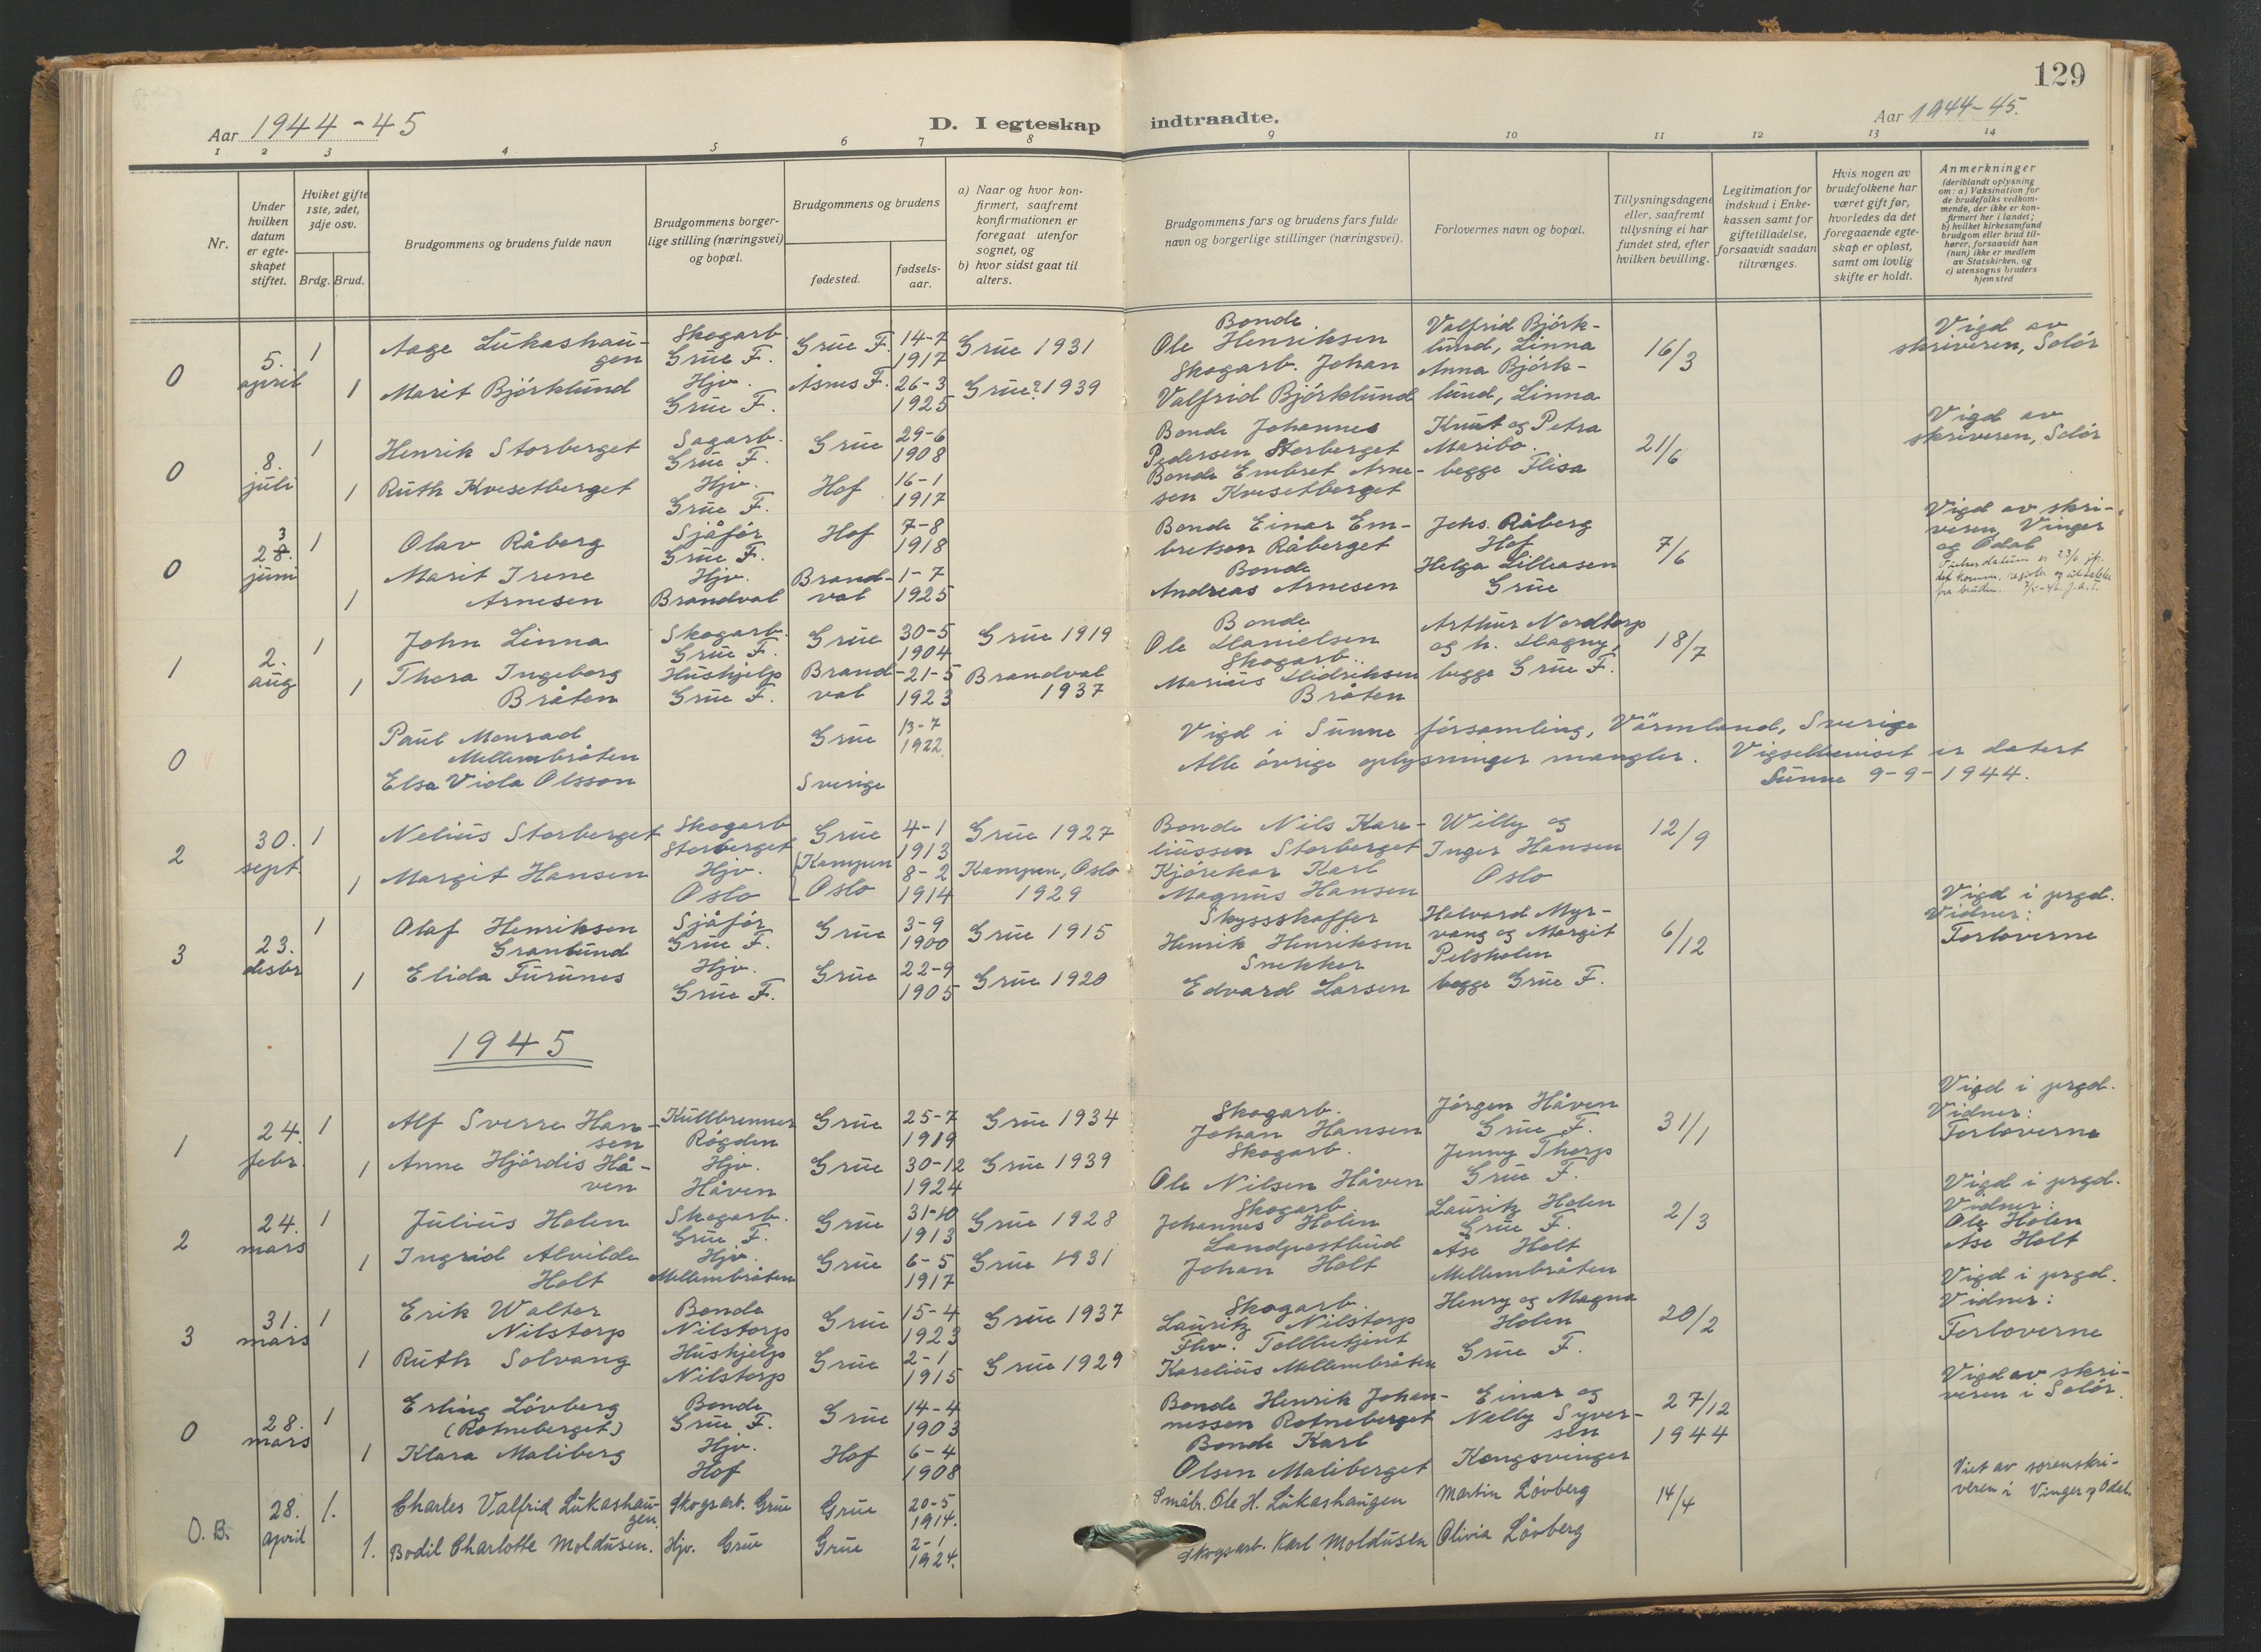 129
Aar 1944-45
D. I egteskap indtraadte.
Aar 1944-45.
1 2 3 4 5 6 7 8 9 10 11 12 13 14
Nr.
Under hvilken datum er egteskapet stiftet.
Hviket gifte 1ste, 2det, 3dje osv.
Brdg. Brud.
Brudgommens og brudens fulde navn
Brudgommens borgerlige stilling (næringsvei) og bopæl.
Brudgommens og brudens
fødested.
fødselsaar.
a) Naar og hvor konfirmert, saafremt konfirmationen er foregaat utenfor sognet, og
b) hvor sidst gaat til alters.
Brudgommens fars og brudens fars fulde navn og borgerlige stillinger (næringsvei).
Forlovernes navn og bopæl.
Tillysningsdagene eller, saafremt tillysning ei har fundet sted, efter hvilken bevilling.
Legitimation for indskud i Enkekassen samt for giftetilladelse, forsaavidt saadan tiltrænges.
Hvis nogen av brudefolkene har været gift før, hvorledes da det foregaaende egteskap er opløst, samt om lovlig skifte er holdt.
Anmerkninger
(deriblandt oplysning om: a) Vaksination for de brudefolks vedkommende, der ikke er konfirmert her i landet; b) hvilket kirkesamfund brudgom eller brud tilhører, forsaavidt han (hun) ikke er medlem av Statskirken, og c) utensogns bruders hjemsted
0 5. april 1 Aage Lukashaugen Skogarb. Grue F. Grue F. 14-7 1917 Grue 1931 Bonde Ole Henriksen Valfrid Björklund, Linna 16/3 Vigd av skriveren, Solör
1 Marit Björklund Hjv. Grue F. Åsnes F. 26-3 1925 Grue? 1939 Skogarb. Johan Valfrid Björklund Anna Björklund, Linna
0 8. juli 1 Henrik Storberget Sagarb. Grue F. Grue 29-6 1908 Bonde Johannes Pedersen Storberget Knut og Petra Maribo. begge Flisa 21/6 Vigd av skriveren, Solör
1 Ruth Kvesetberget Hjv. Grue F. Hof 16-1 1917 Bonde Embret Arnesen Kvesetberget
0 28. 3 juni 1 Olav Råberg Sjåför Grue F. Hof 7-8 1918 Bonde Einar Embretsen Råberget Johs. Råberg Hof 7/6 Vigd av skriveren, Vinger og Odal
1 Marit Irene Arnesen Hjv. Brandval Brandval 1-7 1925 Bonde Andreas Arnesen Helga Lilleasen Grue
1 2. aug 1 John Linna Skogarb. Grue F. Grue 30-5 1904 Grue 1919 Bonde Ole Danielsen Arthur Nordtorp og h. Dagny, begge Grue F. 18/7
1 Thora Ingeborg Bråten Hushjelp Grue F. Brandval 21-5 1923 Brandval 1937 Skogarb. Marius Didriksen Bråten
0 Paul Monrad Mellembråten Grue 13-7 1922 Vigd i Sunne församling, Värmland, Sverige
Elsa Viola Olsson Sverige Alle övrige oplysninger mangler. Vigselbeviset er datert Sunne 9-9-1944.
2 30. sept. 1 Nelius Storberget Skogarb Storberget Grue 4-1 1913 Grue 1927 Bonde Nils Kareliussen Storberget Willy og Inger Hansen Oslo 12/9
1 Margit Hansen Hjv. Oslo Kampen Oslo 8-2 1914 Kampen, Oslo 1929 Kjörekar Karl Magnus Hansen
3 23. desbr 1 Olaf Henriksen Granlund Sjåför Grue F. Grue 3-9 1900 Grue 1915 Skyssskaffer Henrik Henriksen Halvard Myrvang og Margit Pelsholen begge Grue F. 6/12 Vigd i prgd. Vidner: Forloverne
1 Elida Furunes Hjv. Grue F. Grue 22-9 1905 Grue 1920 Snekker Edvard Larsen
1945
1 24. febr. 1 Alf Sverre Hansen Kullbrenner Rögden Grue 25-7 1919 Grue 1934 Skogarb. Johan Hansen Jörgen Håven Grue F. 31/1 Vigd i prgd. Vidner: Forloverne
1 Anne Hjördis Håven Hjv. Håven Grue 30-12 1924 Grue 1939 Skogarb. Ole Nilsen Håven Jenny Thorp Grue F.
2 24. mars 1 Julius Holen Skogarb. Grue F. Grue 31-10 1913 Grue 1928 Skogarb Johannes Holen Lauritz Holen Grue F. 2/3 Vigd i prgd. Vidner: Ole Holen Åse Holt
1 Ingrid Alvilde Holt Hjv. Mellembråten Grue 6-5 1917 Grue 1931 Landpostbud Johan Holt Åse Holt Mellembråten
3 31. mars 1 Erik Walter Nilstorp Bonde Nilstorp Grue 15-4 1923 Grue 1937 Skogarb. Lauritz Nilstorp Henry og Magna Holen Grue F. 20/2 Vigd i prgd. Vidner: Forloverne
1 Ruth Solvang Hushjelp Nilstorp Grue 2-1 1915 Grue 1929 Fhv. Tollbetjent Karelius Mellembråten
0 28. mars 1 Erling Lövberg (Rotneberget) Bonde Grue F. Grue 14-4 1903 Bonde Henrik Johannessen Rotneberget Einar og Nelly Syversen Kongsvinger 27/12 1944 Vigd av skriveren i Solör.
1 Klara Maliberg Hjv. Hof Hof 6-4 1908 Bonde Karl Olsen Maliberget
O.B. 28. april 1. Charles Valfrid Lukashaugen Skogsarb. Grue Grue 20-5 1914. Småbr. Ole H. Lukashaugen Martin Lövberg 14/4 Viet av sorenskriveren i Vinger og Odal.
1. Bodil Charlotte Moldusen. Hjv. Grue Grue 2-1 1924. Skogsarb. Karl Moldusen Olivia Lövberg